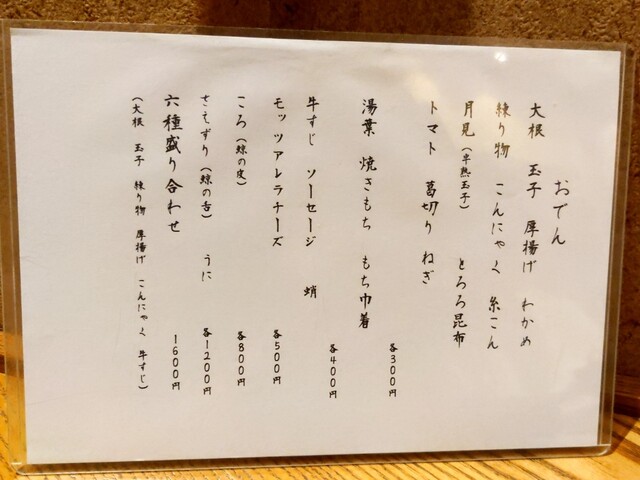 おでん
大根　玉子　厚揚げ　わかめ
練り物　こんにゃく　糸こん
月見（半熟玉子）　とろろ昆布
トマト　葛切り　ねぎ
各300円
湯葉　焼きもち　もち巾着
各400円
牛すじ　ソーセージ　蛸
各500円
モッツアレラチーズ
ころ（鯨の皮）
各800円
さえずり（鯨の舌）　うに
各1200円
六種盛り合わせ
1600円
（大根　玉子　練り物　厚揚げ　こんにゃく　牛すじ）